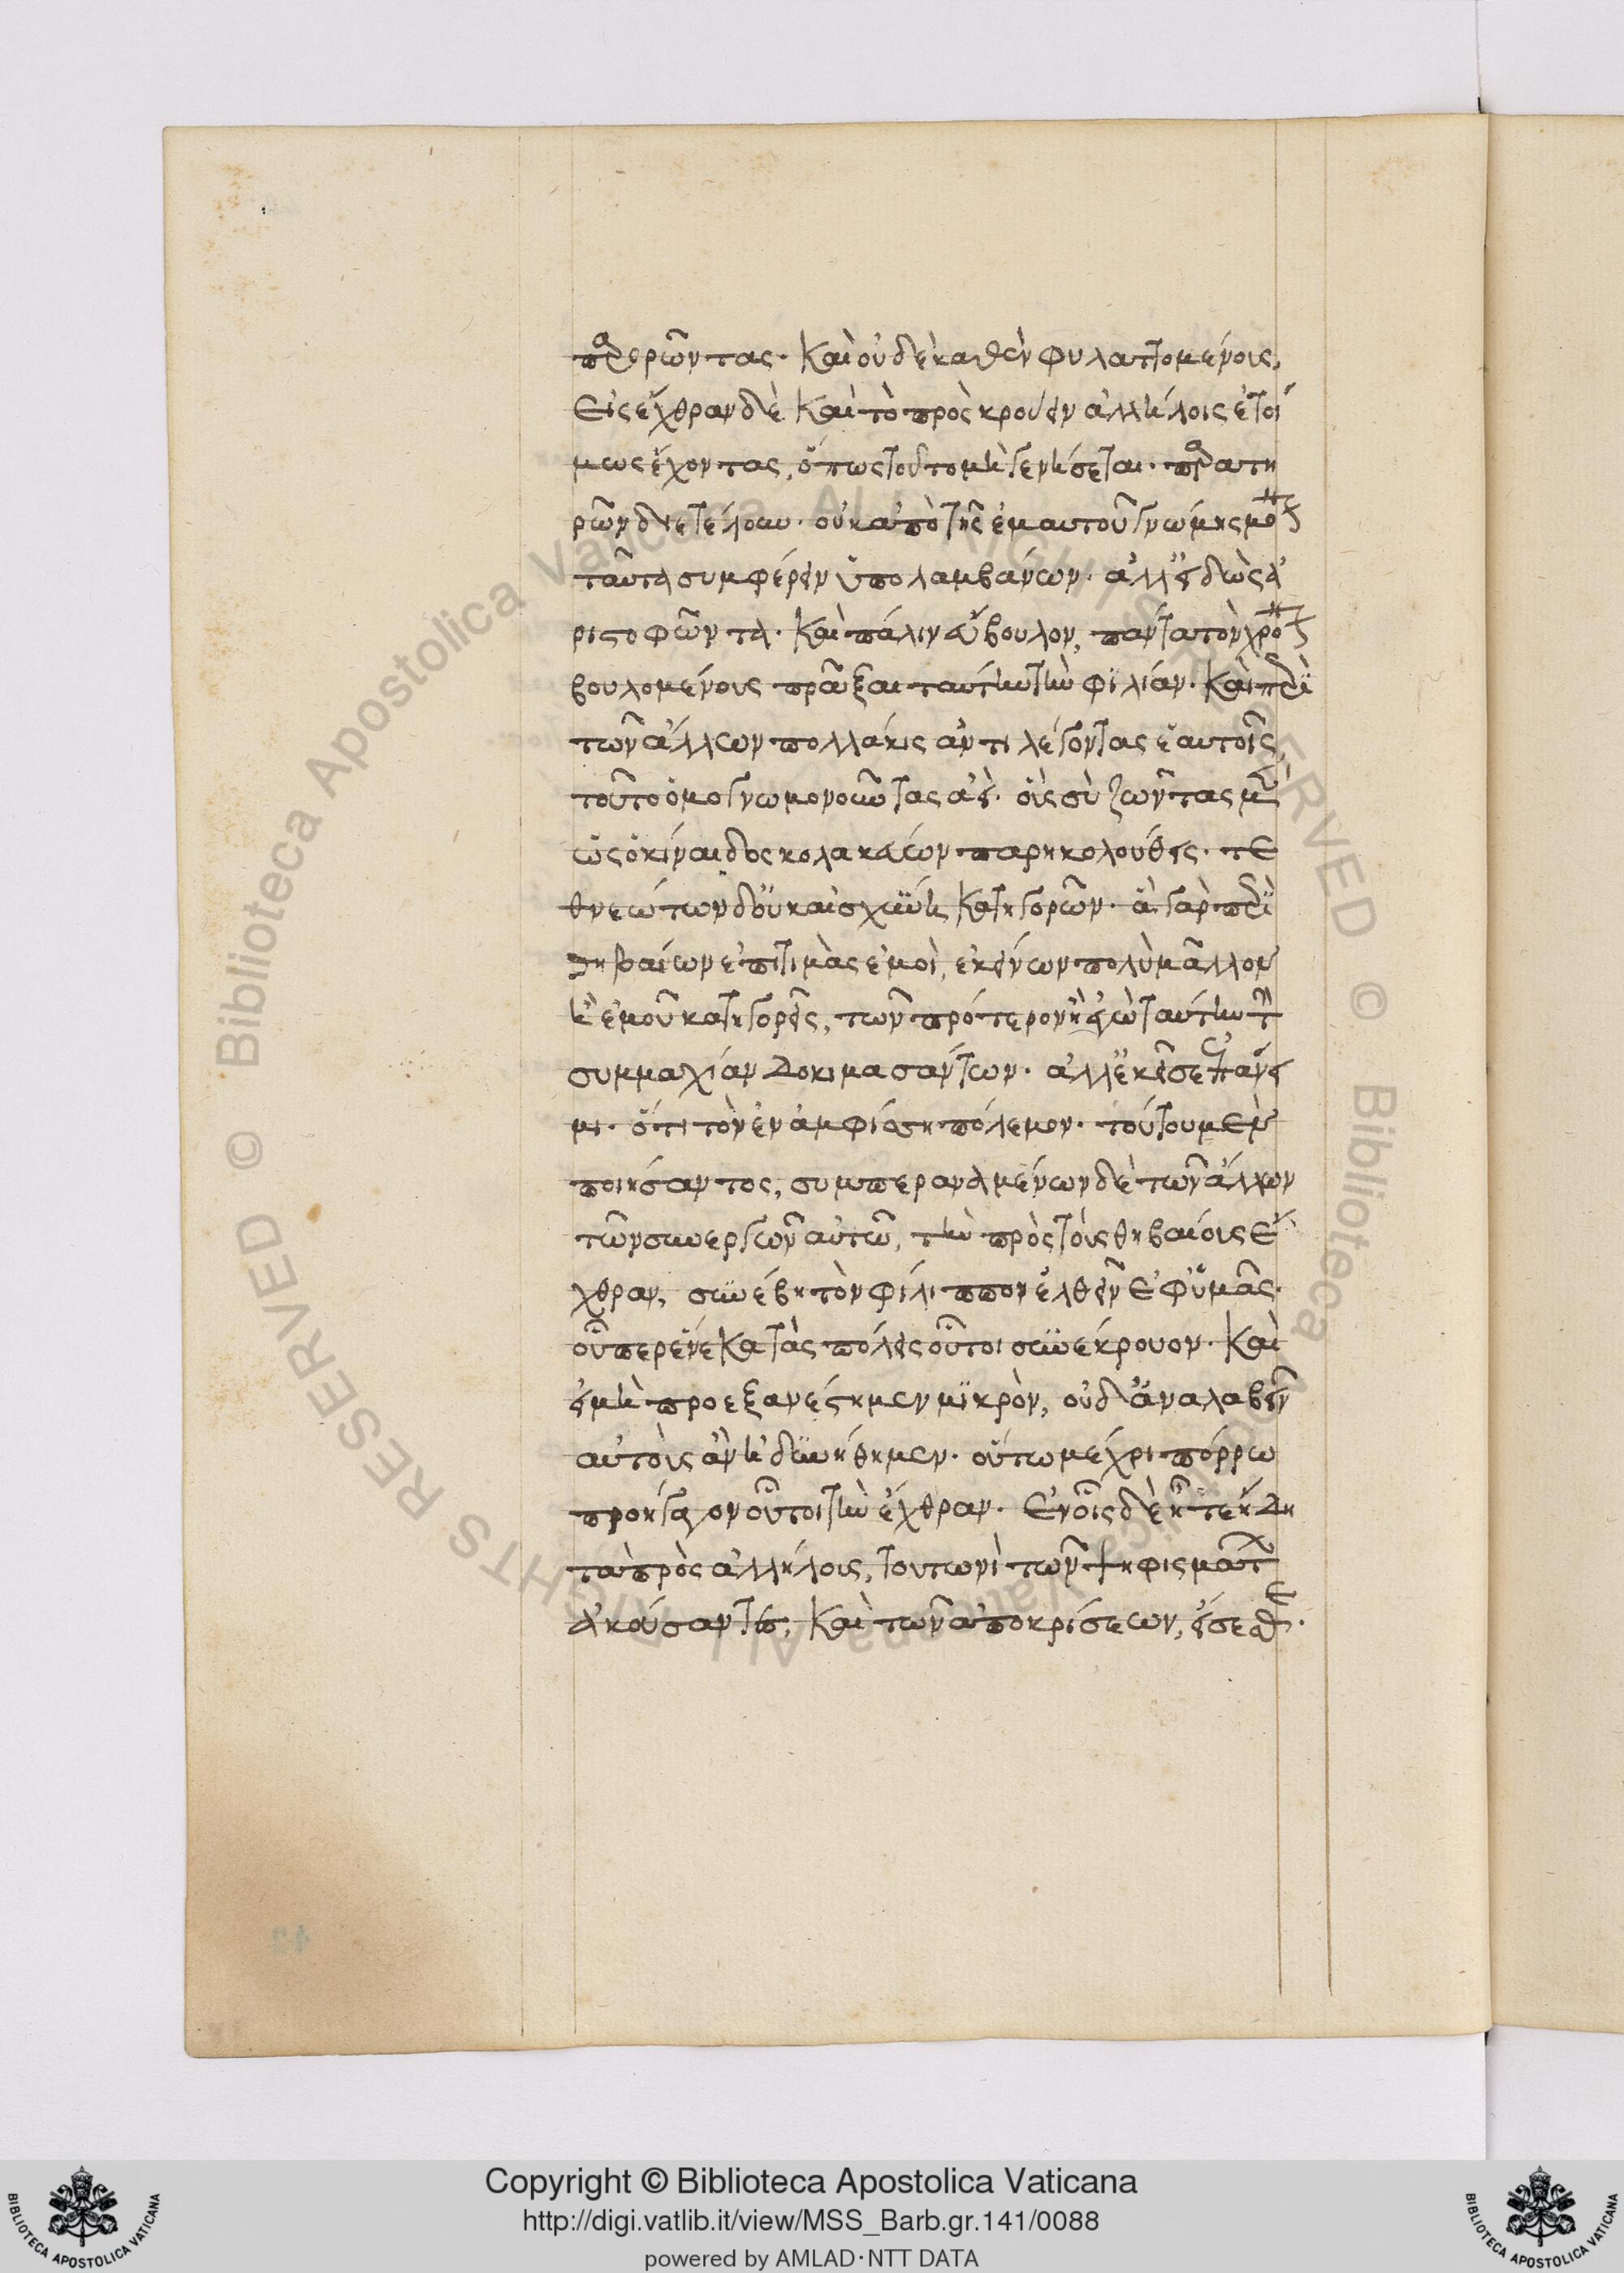 παρορῶντας· καὶ οὐδὲ καθὲν φυλαττομένους,
εἰς ἔχθραν δὲ καὶ τὸ προσκρούειν ἀλλήλοις ἑτοί
μως ἔχοντας, ὅπως τοῦτο μὴ γενήσεται· παρατη
ρῶν διετέλουν· οὐκ ἀπὸ τῆς ἐμαυτοῦ γνώμης μόνον
ταῦτα συμφέρειν ὑπολαμβάνων· ἀλλ' εἰδὼς ἀ
ριστοφῶντα· καὶ πάλιν εὔβουλον, πάντα τὸν χρόνον
βουλομένους πρᾶξαι ταύτην τὴν φιλίαν· καὶ περὶ
τῶν ἄλλων πολλάκις ἀντιλέγοντας ἑαυτοῖς,
τοῦτο ὁμογνωμονοῦντας ἀεί· οὓς σὺ ζῶντας μὲν
ὡς ὁ κίναιδος κολακεύων παρηκολούθεις· τε
θνεώτων δ' οὐκ αἰσχύνη κατηγορῶν· ἃ γὰρ περὶ
θηβαίων ἐπιτιμᾶς ἐμοὶ, ἐκείνων πολὺ μᾶλλον
ἢ ἐμοῦ κατηγορεῖς, τῶν πρότερον ἢ ἐγὼ ταύτην τὴν
συμμαχίαν δοκιμασάντων· ἀλλ' ἐκεῖσε ἐπάνει
μι· ὅτι τὸν ἐν ἀμφίσση πόλεμον· τούτου μὲν
ποιήσαντος, συμπεραναμένων δὲ τῶν ἄλλων
τῶν συνεργῶν αὐτῶ, τὴν πρὸς τοὺς θηβαίους ἔ
χθραν, συνέβη τὸν φίλιππον ἐλθεῖν ἐφ' ὑμᾶς·
οὗπερ ἕνεκα τὰς πόλεις οὗτοι συνέκρουον· καὶ
εἰ μὴ προεξανέστημεν μικρὸν, οὐδ' ἀναλαβεῖν
αὐτοὺς ἂν ἠδυνήθημεν· οὕτω μέχρι πόρρω
προήγαγον οὗτοι τὴν ἔχθραν· ἐν οἷς δὲ ἦτε ἤδη
τὰ πρὸς ἀλλήλους, τουτωνὶ τῶν ψηφισμάτων
ἀκούσαντες, καὶ τῶν ἀποκρίσεων, εἴσεσθε·
Copyright © Biblioteca Apostolica Vaticana
http://digi.vatlib.it/view/MSS_Barb.gr.141/0088
powered by AMLAD·NTT DATA